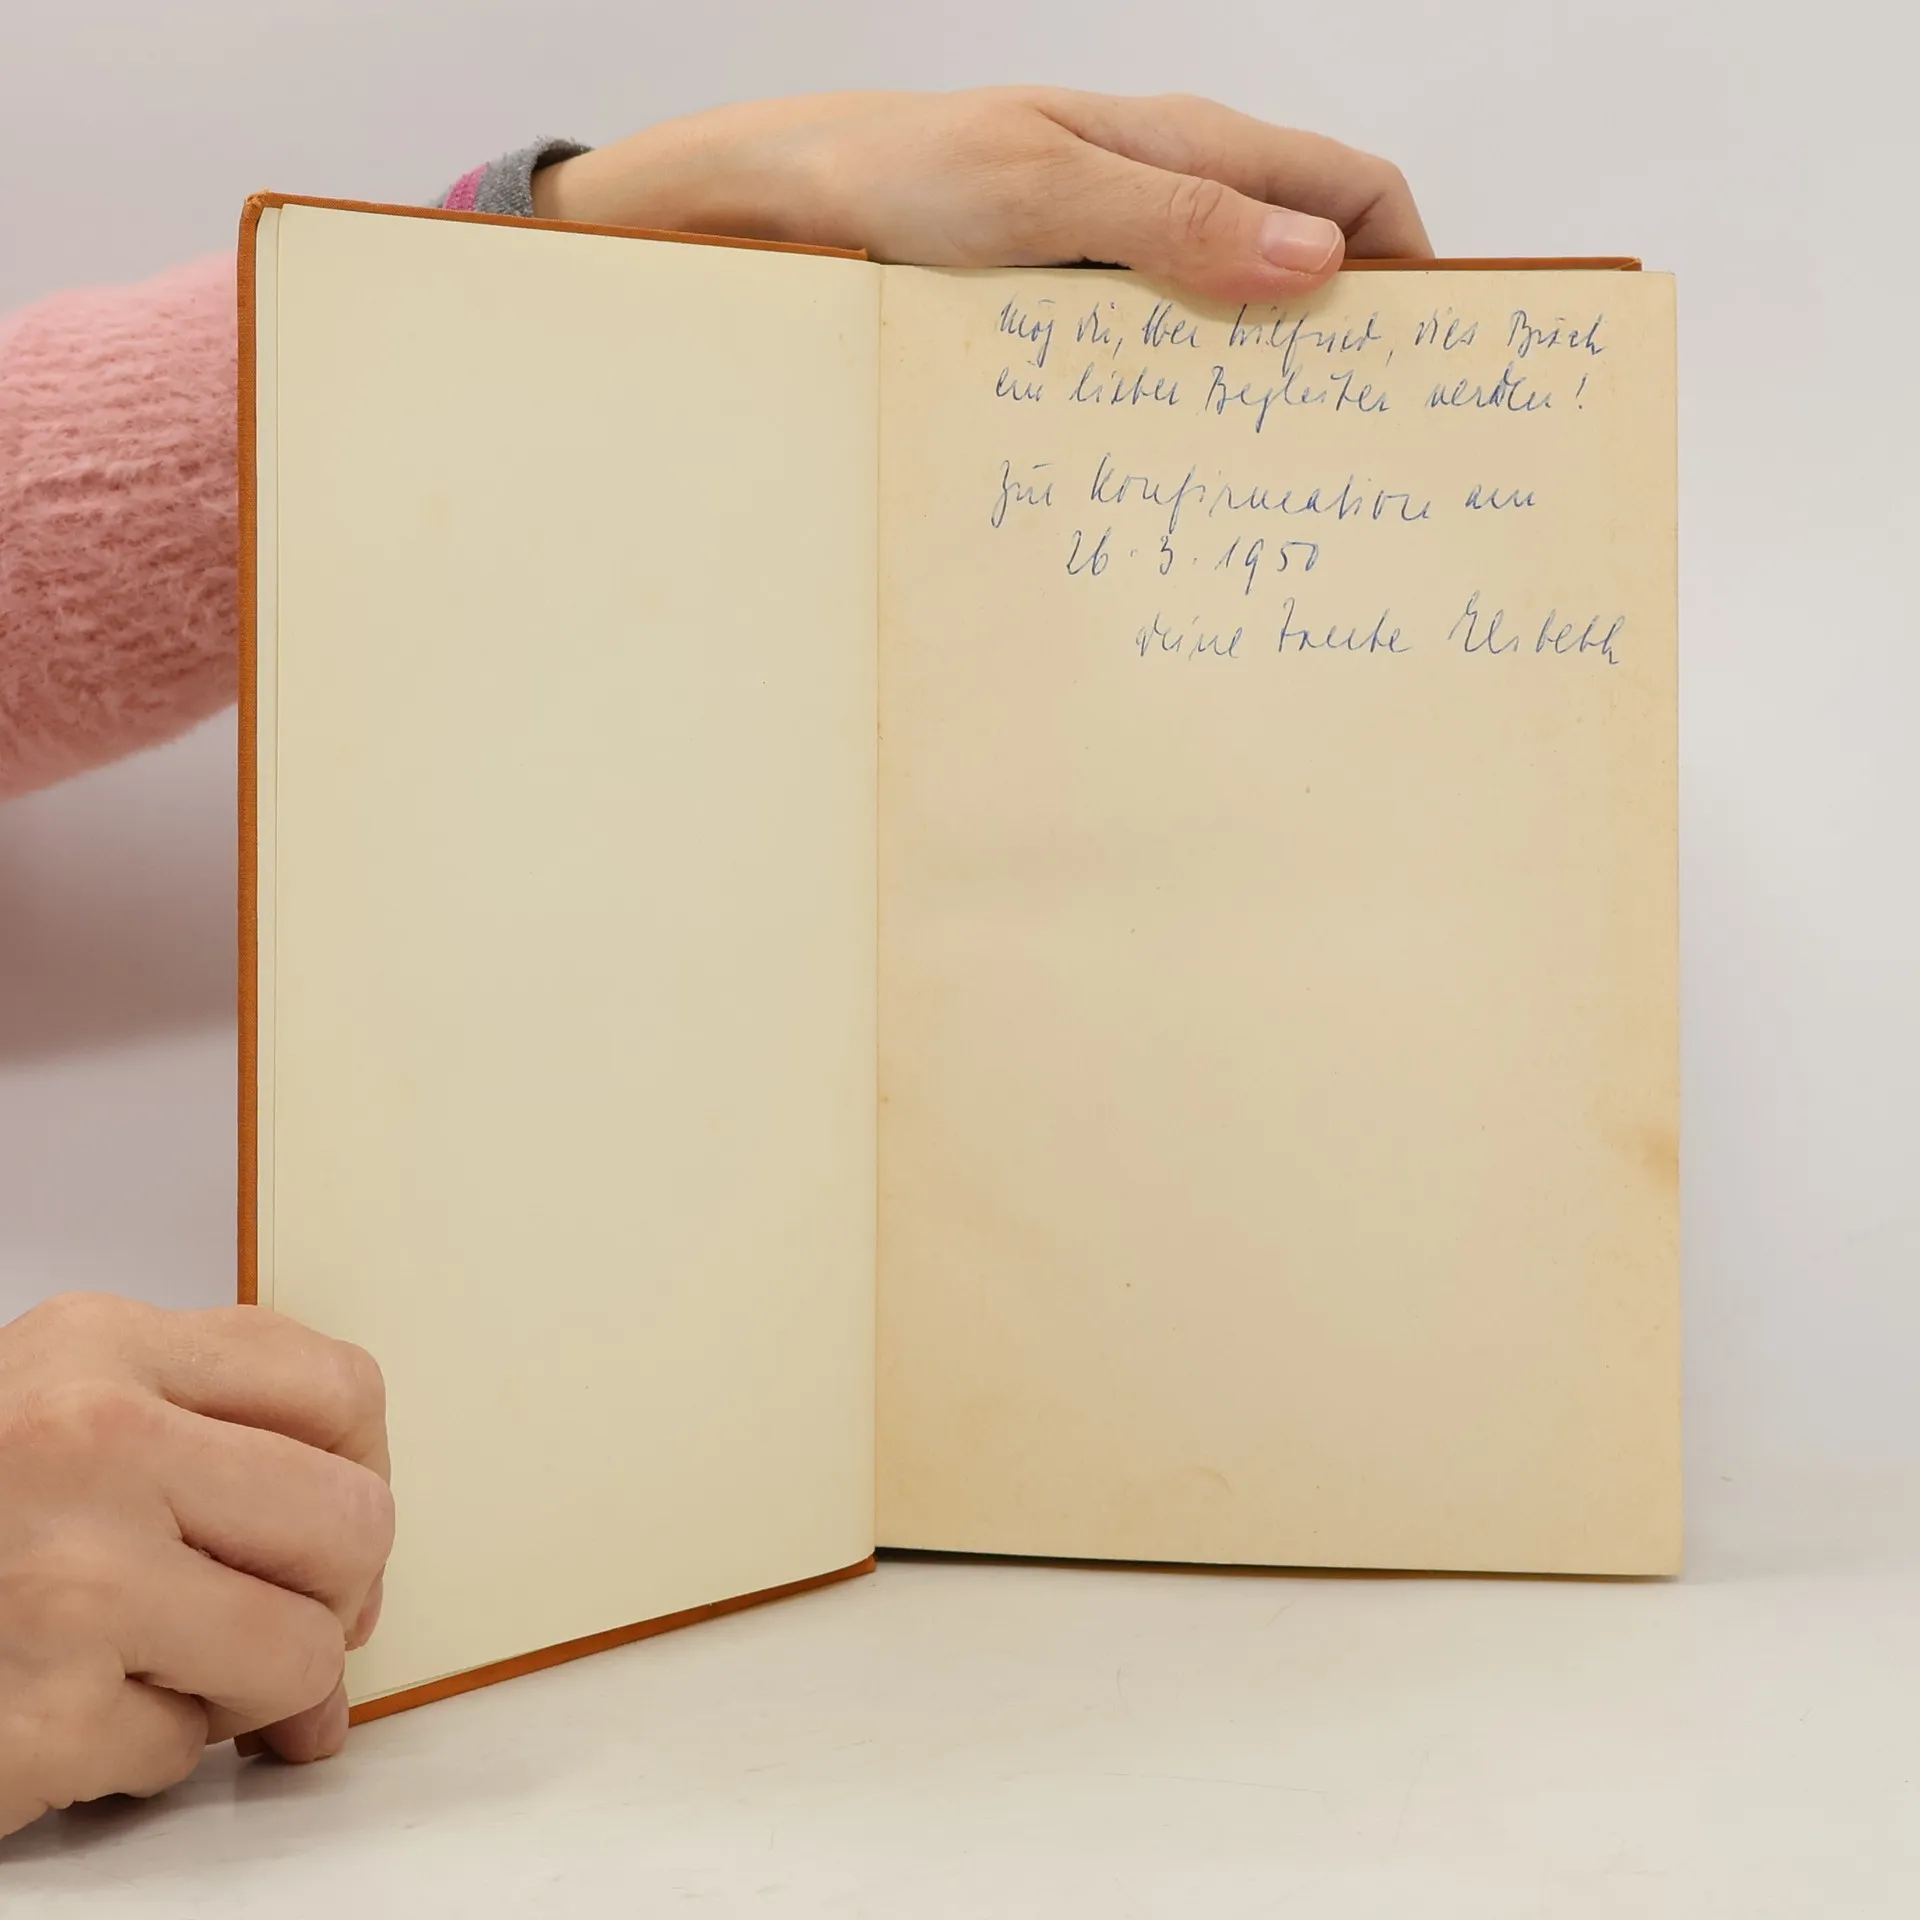 Mög dir, lber Wilfried, dies Buch
ein lieber Begleiter werden!
Zur Konfirmation am
26.3.1950
deine Tante Elsbeth